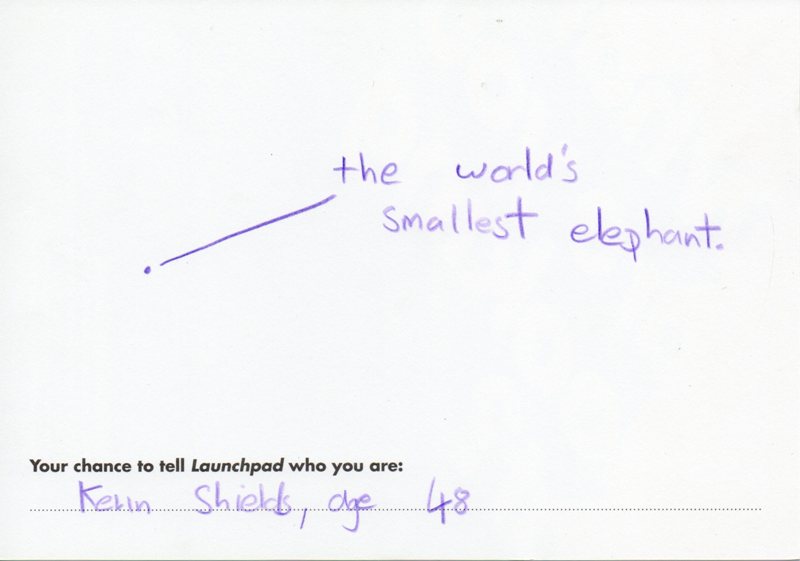 the world's
smallest elephant.
Your chance to tell Launchpad who you are:
Kevin Shields, age 48